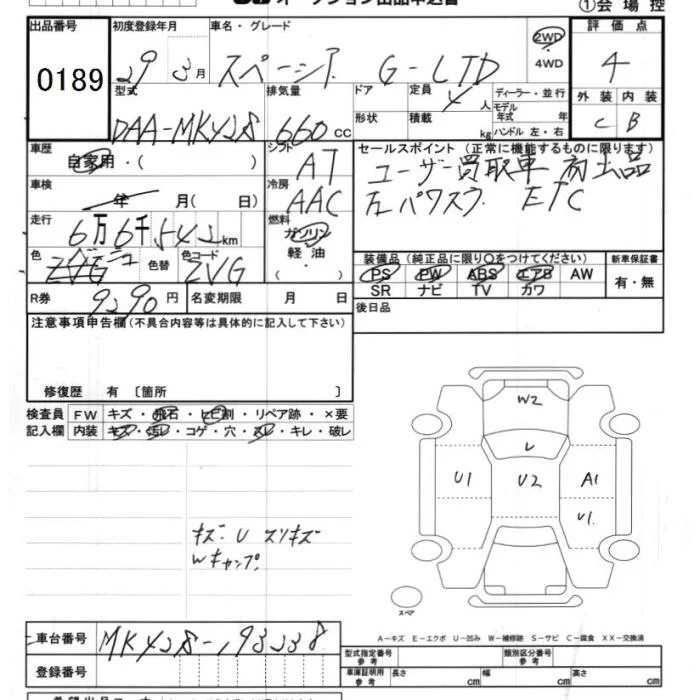 ①会場控
出品番号
0189
初度登録年月
29 3月
車名・グレード
スペーシア G-LTD
2WD
4WD
評価点
4
外装 内装
C B
型式
DAA-MK42S
排気量
660cc
ドア
形状
定員
4人
積載
kg
ディーラー・並行
モデル
年式 年
ハンドル 左・右
車歴
自家用・( )
シフト
AT
セールスポイント (正常に機能するものに限ります)
ユーザー買取車 初出品
左パワスラ ETC
車検
年 月( 日)
冷房
AAC
走行
6万6千542km
燃料
ガソリン
軽油
( )
色
色替
色コード
ZVG
装備品(純正品に限り○をつけてください)
PS PW ABS エアB AW
SR ナビ TV カワ
新車保証書
有・無
R券
9290円
名変期限 月 日
後日品
注意事項申告欄(不具合内容等は具体的に記入して下さい)
修復歴 有 〔箇所 〕
検査員
記入欄
FW キズ・飛石・ヒビ割・リペア跡・×要
内装 キズ・汚レ・コゲ・穴・スレ・キレ・破レ
W2
レ
U1 U2 A1
U1
キズ・U スリキズ
スペア
A-キズ E-エクボ U-凹み W-補修跡 S-サビ C-腐食 XX-交換済
車台番号
MK42S-193238
登録番号
型式指定番号
参考
類別区分番号
参考
車庫証明用
参考
長さ cm 幅 cm 高さ cm